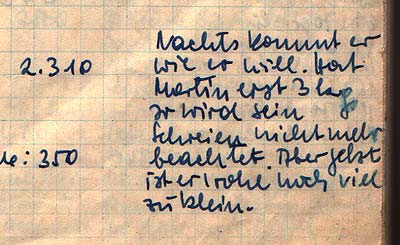 Nachts kommt er
2.310 wie er will. Hat
Martin erst 3 kg
wird sein
Schreien nicht mehr
: 350 beachtet. Aber jetzt
ist er wohl noch viel
zu klein.